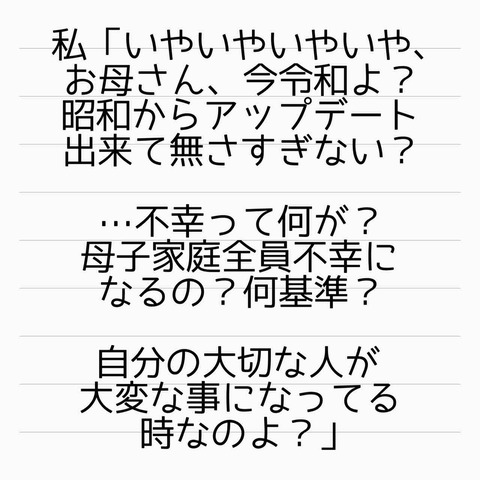 私「いやいやいやいや、
お母さん、今令和よ？
昭和からアップデート
出来て無さすぎない？
…不幸って何が？
母子家庭全員不幸に
なるの？何基準？
自分の大切な人が
大変な事になってる
時なのよ？」